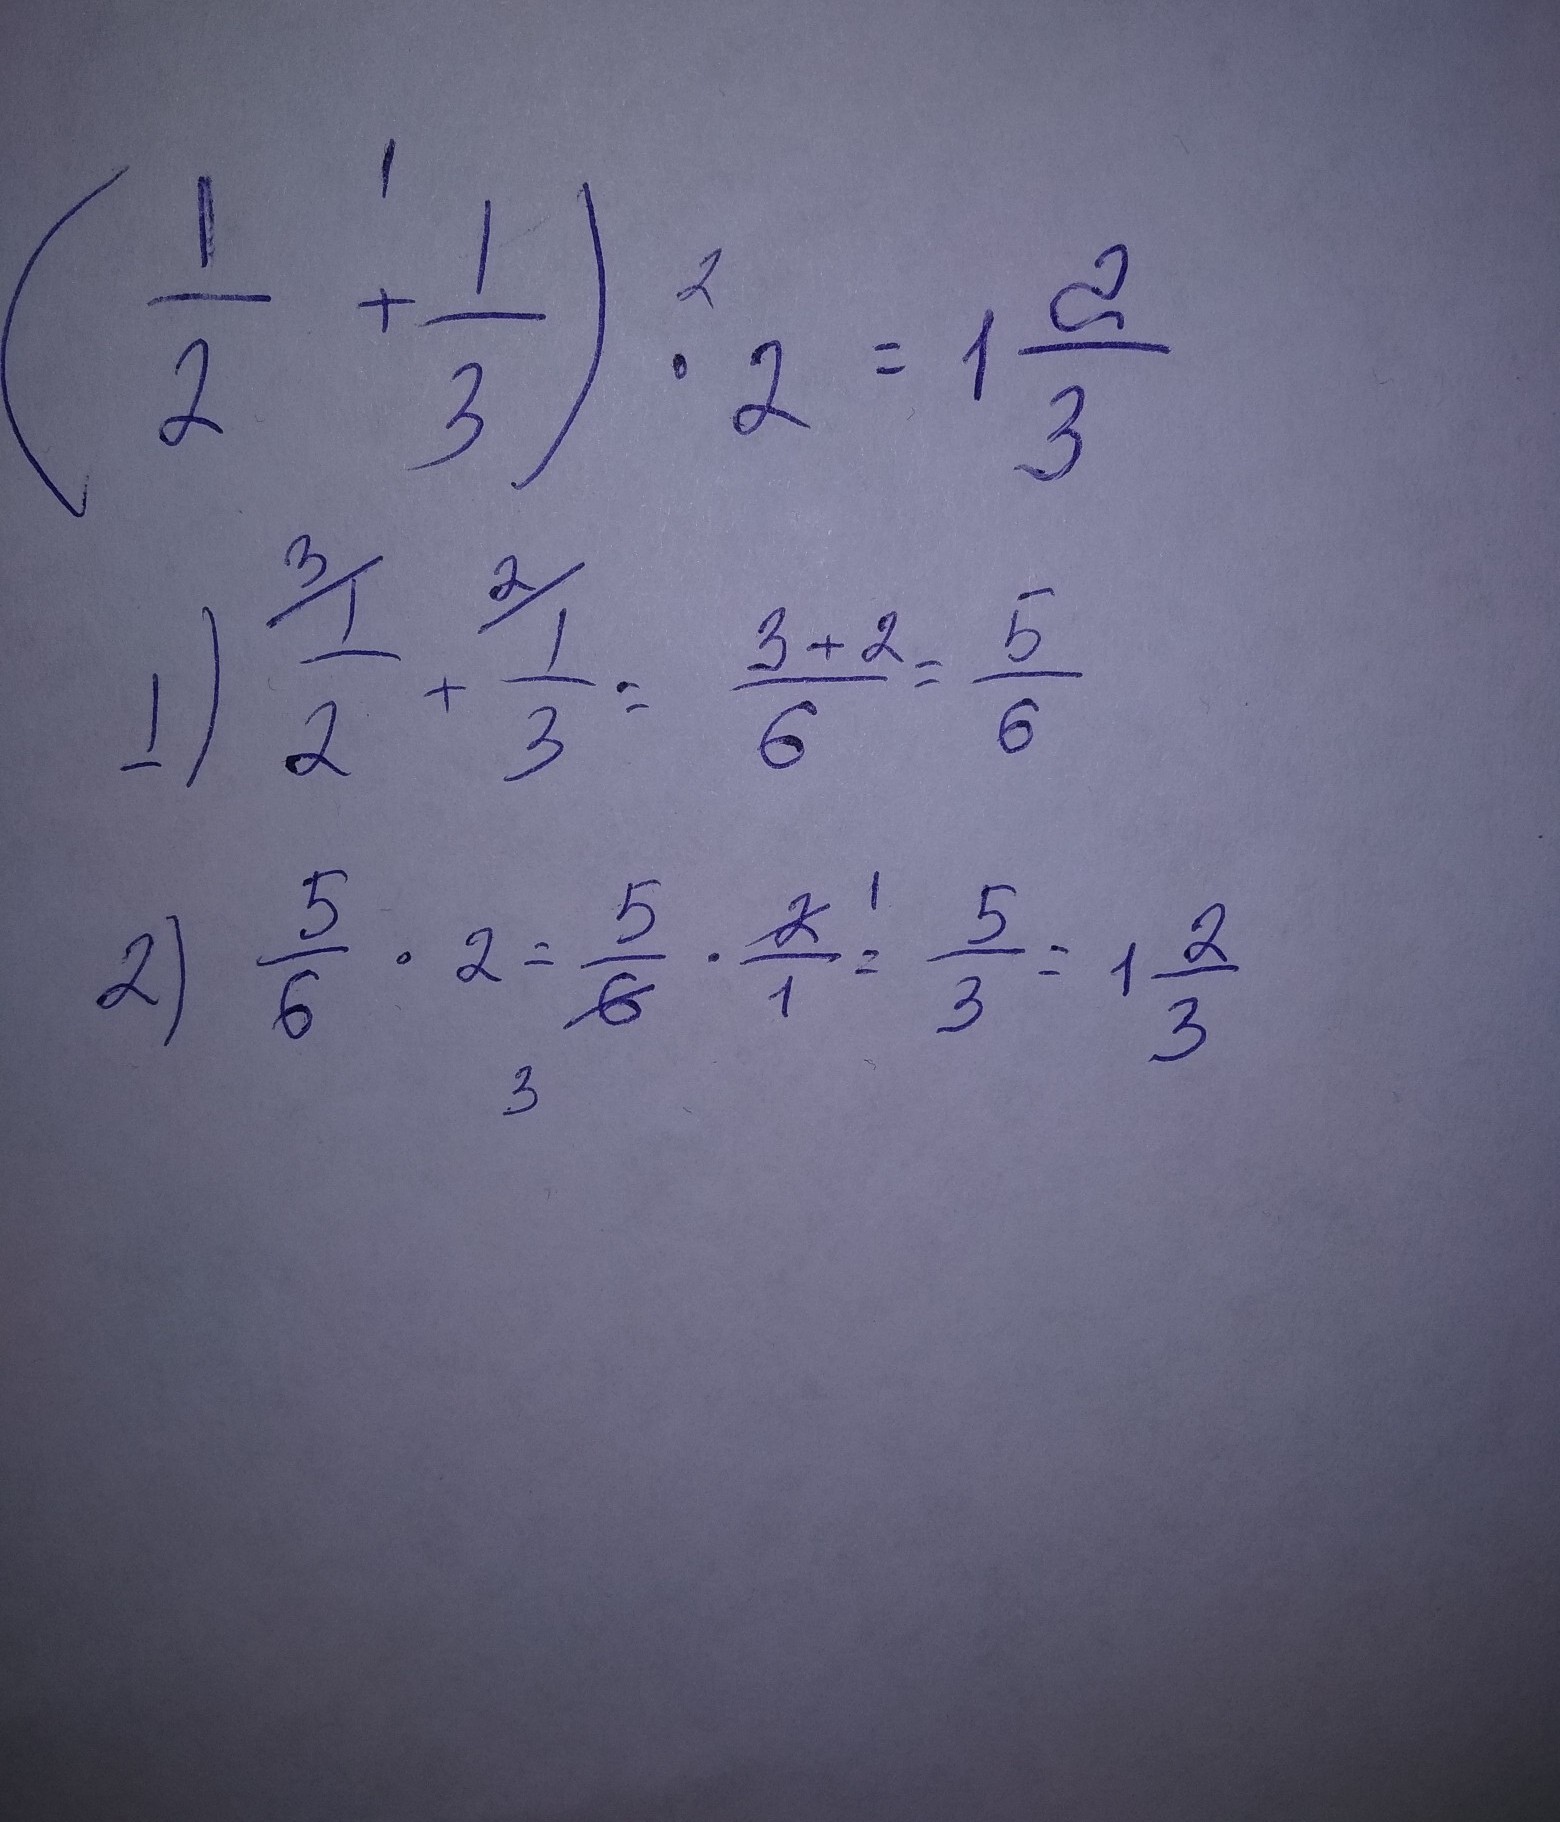 (1/2 +¹ 1/3) ·² 2 = 1 2/3
1) ³/1/2 + ²/1/3 = 3+2/6 = 5/6
2) 5/6 · 2 = 5/6 · 2/1 ¹ = 5/3 = 1 2/3
3